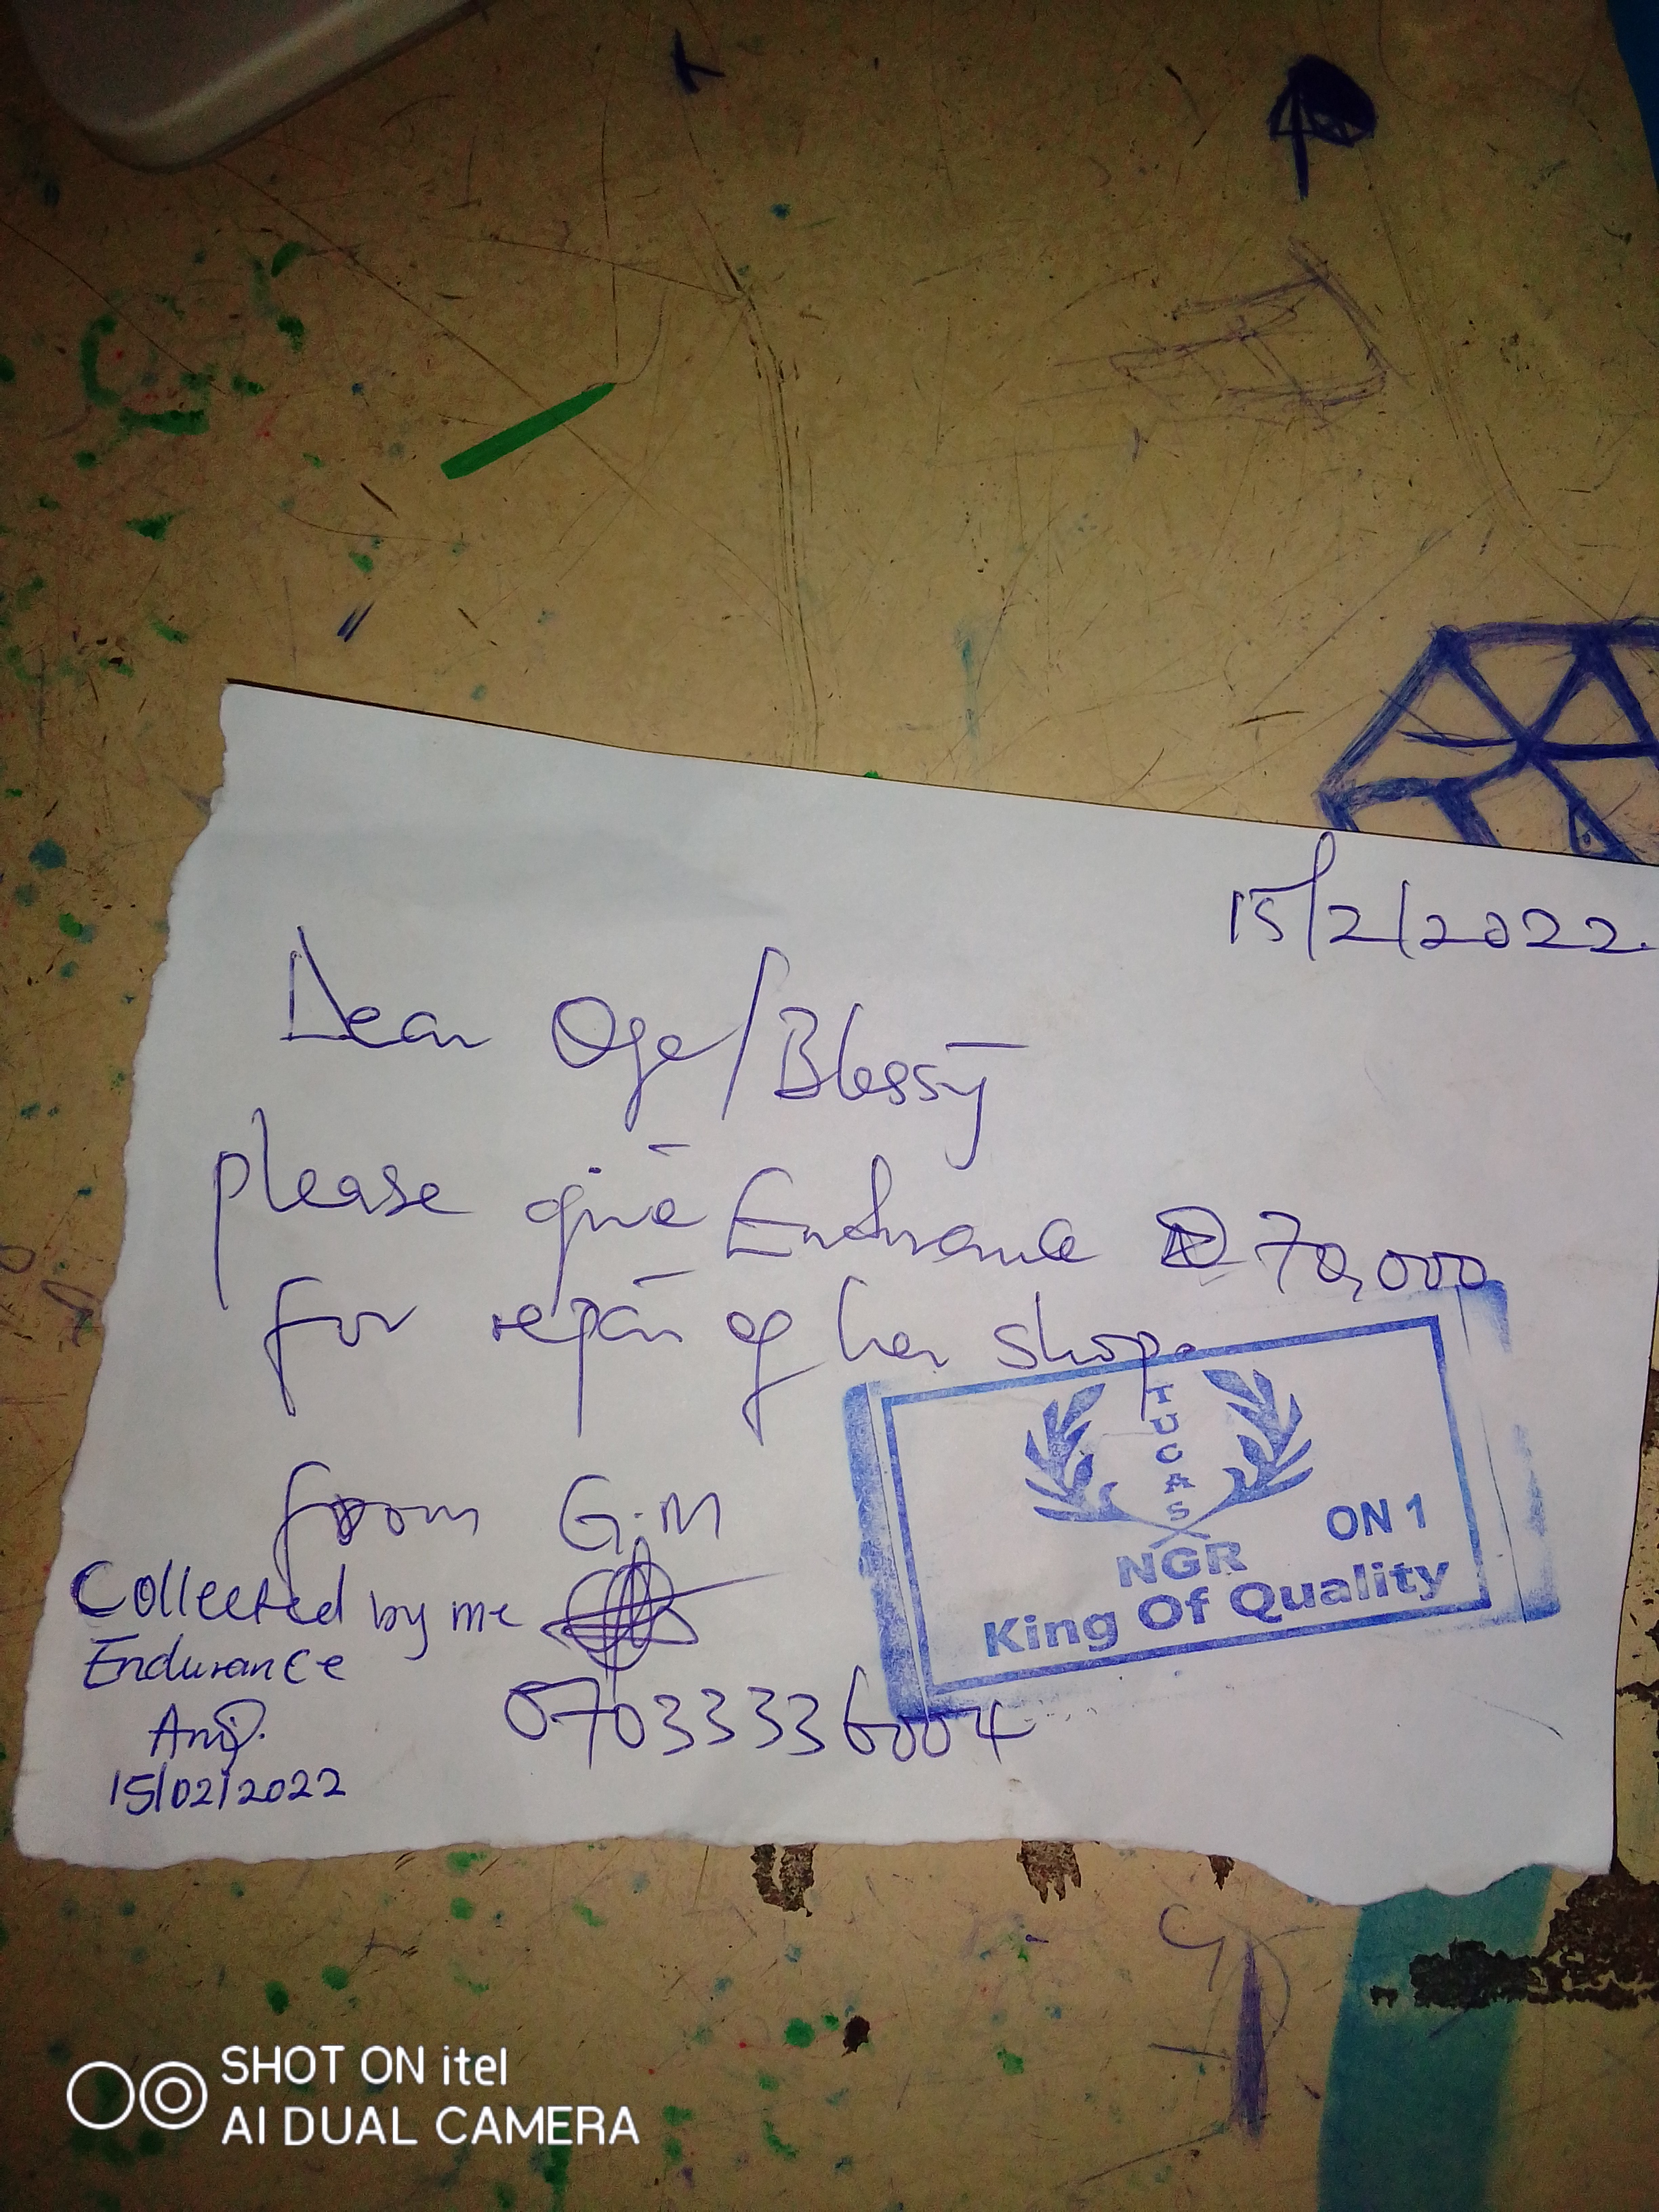 15/2/2022.
Dear Oge/Blessing
please give Endurance 70,000
for repair of her shop.
from G.M
Collected by me
Endurance
07033336004
15/02/2022
TUCAS
ON 1
NGR
King Of Quality
SHOT ON itel
AI DUAL CAMERA